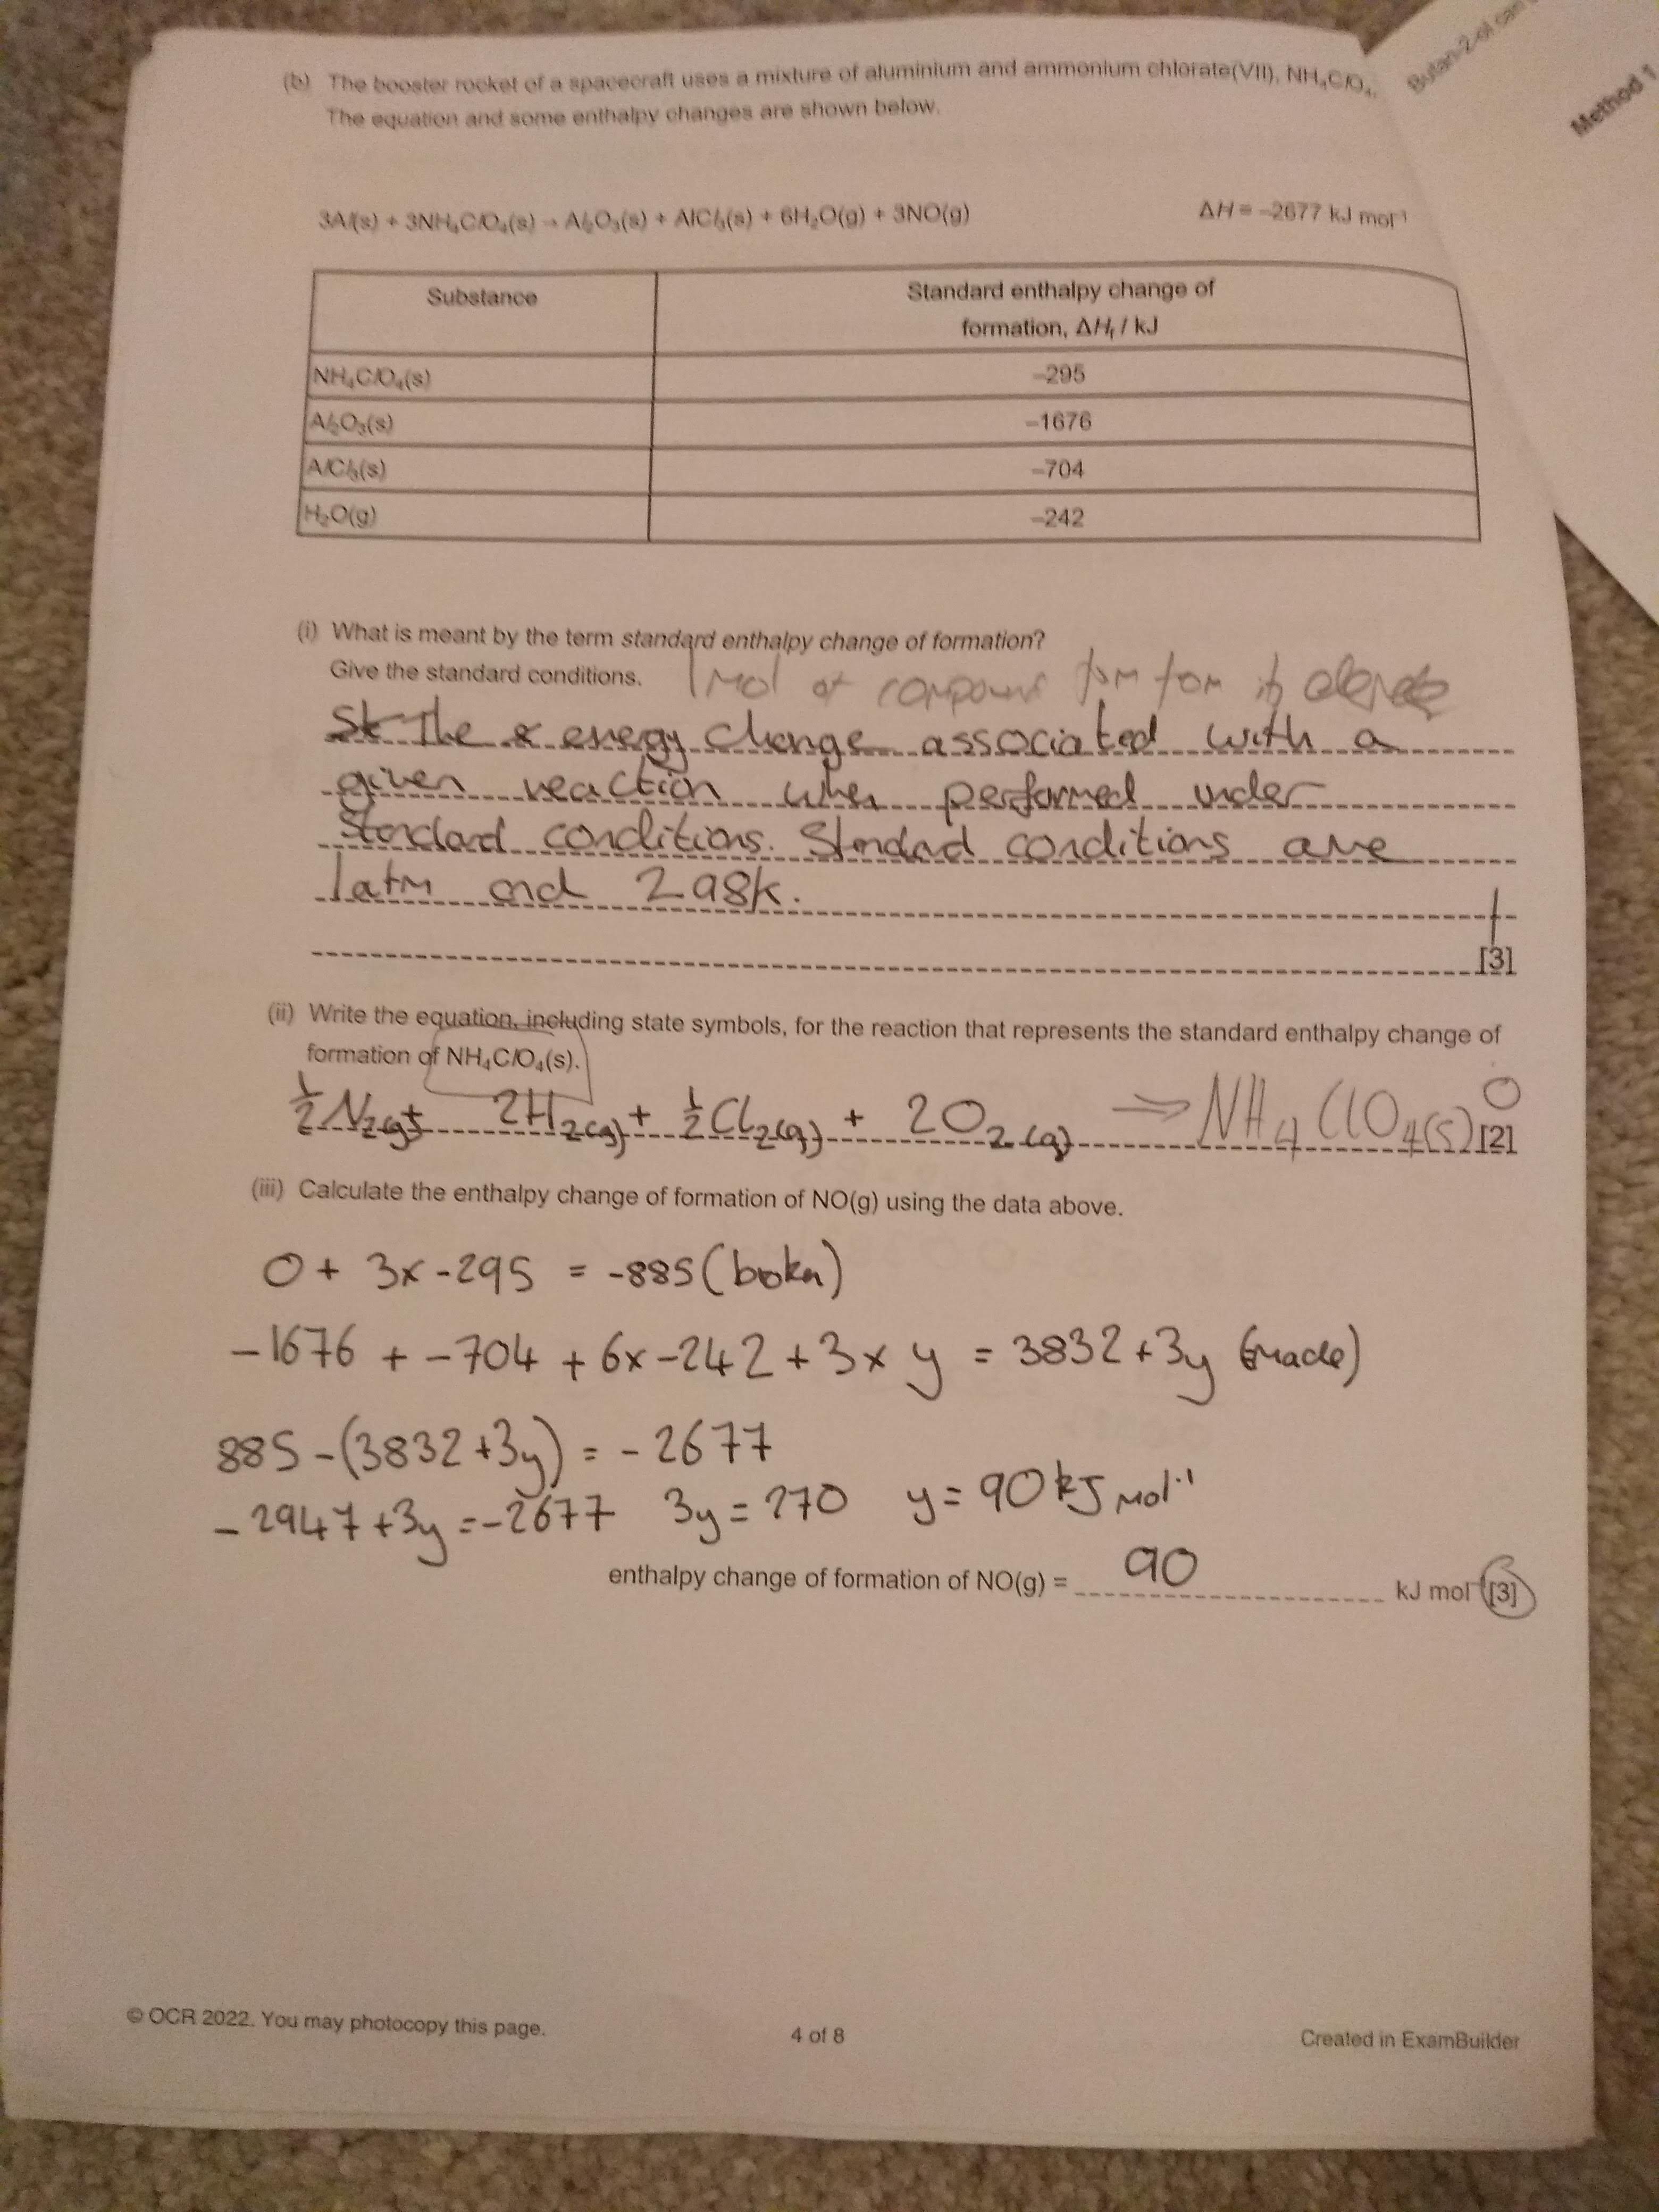 (b) The booster rocket of a spacecraft uses a mixture of aluminium and ammonium chlorate(VII), NH₄ClO₄.
The equation and some enthalpy changes are shown below.
3Al(s) + 3NH₄ClO₄(s) → Al₂O₃(s) + AlCl₃(s) + 6H₂O(g) + 3NO(g) ΔH = –2677 kJ mol⁻¹
Substance Standard enthalpy change of
formation, ΔHf / kJ
NH₄ClO₄(s) –295
Al₂O₃(s) –1676
AlCl₃(s) –704
H₂O(g) –242
(i) What is meant by the term standard enthalpy change of formation?
Give the standard conditions. 1 mol of compound form from its
The energy change associated with a
given reaction when performed under
Standard conditions. Standard conditions are
1atm and 298k.
1
[3]
(ii) Write the equation, including state symbols, for the reaction that represents the standard enthalpy change of
formation of NH₄ClO₄(s).
½N₂(g) + 2H₂(g) + ½Cl₂(g) + 2O₂(g) ⇒ NH₄ClO₄(s) 0 [2]
(iii) Calculate the enthalpy change of formation of NO(g) using the data above.
0 + 3x -295 = -885 (broken)
-1676 + -704 + 6x -242 + 3x y = 3832 + 3y (made)
885 - (3832 + 3y) = - 2677
- 2947 + 3y = - 2677 3y = 270 y = 90 kJ mol⁻¹
enthalpy change of formation of NO(g) = 90 kJ mol⁻¹ [3]
© OCR 2022. You may photocopy this page. 4 of 8 Created in ExamBuilder
Butan-2-ol can
Method 1